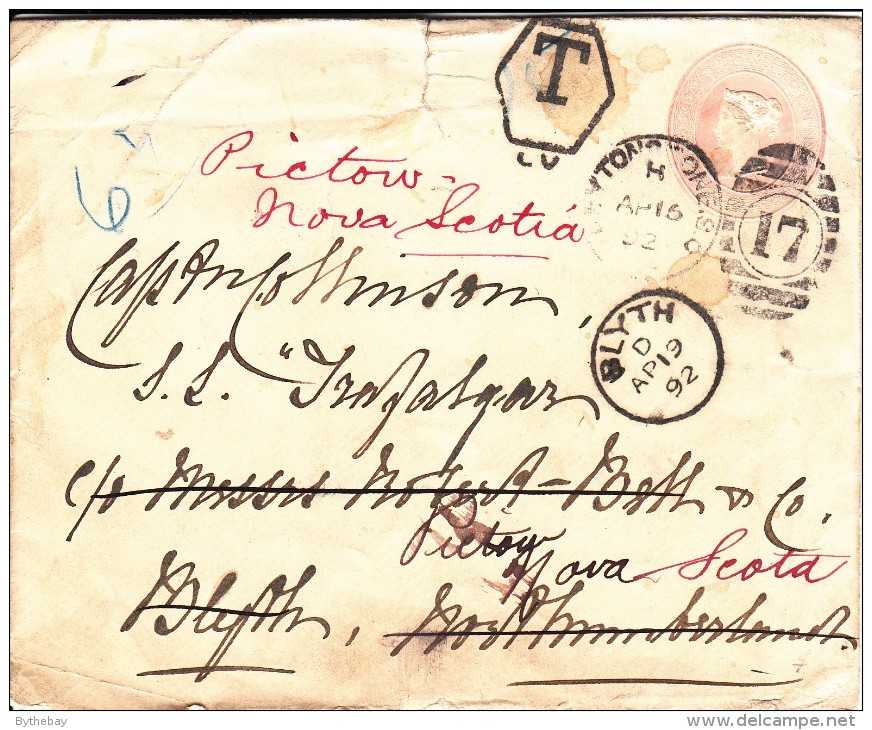 T
Pictou
Nova Scotia
H
AP 16
92
17
BLYTH
D
AP 19
92
Captn Collinson,
S.S. "Trafalgar
c/o Messrs Robert Bell & Co.
Pictou
Nova Scota
Blyth, Northumberland.
Bythebay
www.delcampe.net